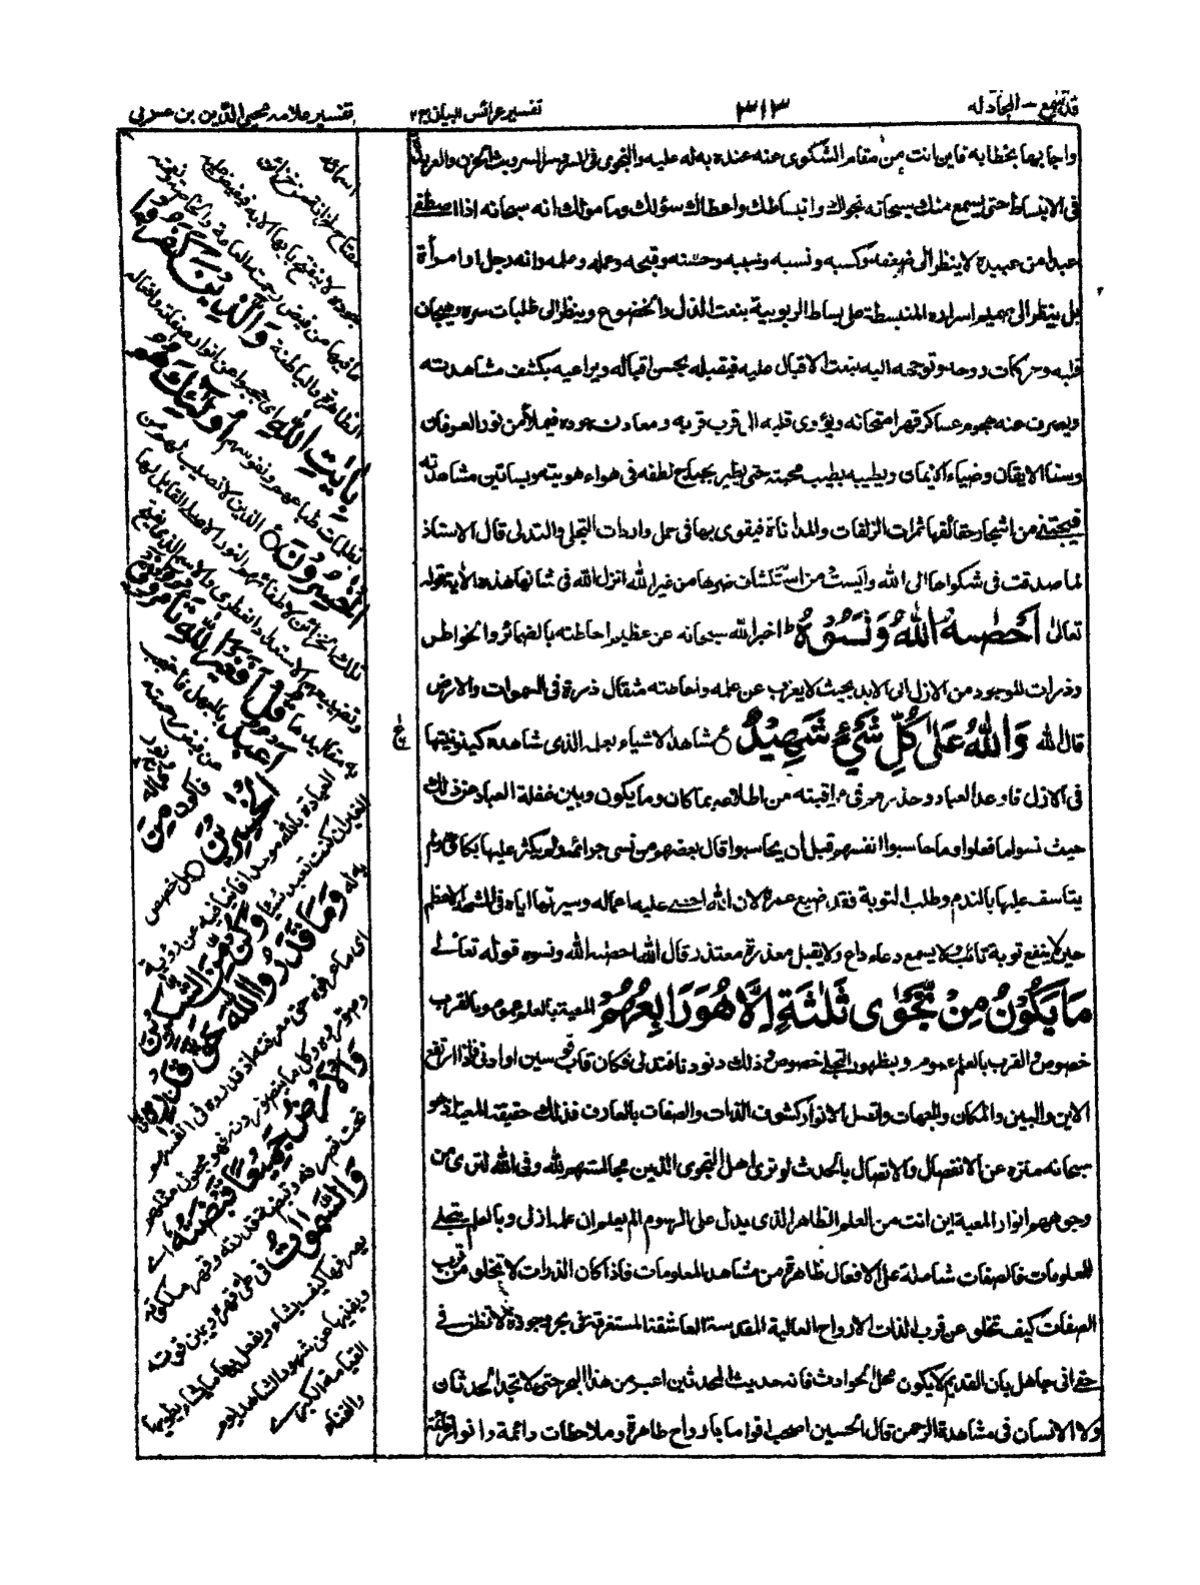 قد سمع – المجادله
٣١٣
تفسير عرائس البيان ج٢
تفسير علامه محيي الدّين بن عربي
واجابها بخطابه فاين انت من مقام الشكوى عنه عنده به له عليه والنجوى فى السر وسر السر وبث الحزن والعربدة
فى الانبساط حتى يسمع منك سبحانه نجواك وانبساطك واعطاك سؤلك ومامولك انه سبحانه اذا اصطفى
عبدا من عبيده لا ينظر الى ضعفه وكسبه ونسبه وحسنه وقبحه وعمله وعلمه وانه رجل او امرأة
بل ينظر الى جميع اسراره المنبسطة على بساط الربوبية بنعت الذل والخضوع وينظر الى طلبات سره وهيجان
قلبه وحركات روحه وتوجهه اليه بنعت الاقبال عليه فيقبله بحسن اقباله ويراعيه بكشف مشاهدته
ويصرف عنه هجوم عساكر قهر امتحانه ويؤوى قلبه الى قرب قربه ومعادن جوده فيملأ من نور العرفان
وسنا الايقان وضياء الايمان ويطيبه بطيب محبته حتى يطير بجناح لطفه فى هواء هويته وبساتين مشاهدته
فيجتنى من اشجار حقائقها ثمرات الزلفات والمداناة فيقوى بها فى حمل واردات التجلى والتدلى قال الاستاذ
لما صدقت فى شكواها الى الله وايست من استكشاف ضرها من غير الله انزل الله فى شانها هذه الاية قوله
تعالىٰ اَحْصٰىهُ اللّٰهُ وَنَسُوْهُ ط اخبر الله سبحانه عن عظيم احاطته بالضمائر والخواطر
وذرات الموجود من الازل الى الابد بحيث لا يعزب عن علمه واحاطته مثقال ذرة فى السموات والارض
قال الله وَاللّٰهُ عَلٰى كُلِّ شَىْءٍ شَهِيْدٌ ○ شاهد الاشياء بعلمه الذى شاهده كينونيتها
فى الازل فاوعد العباد وحذرهم فى مراقبته من اطلاعه بما كان وما يكون وبين غفلة العباد عن ذلك
حيث نسوا ما فعلوا وما حاسبوا انفسهم قبل أن يحاسبوا قال بعضهم من نسى جرائمه ولم يكثر عليها بكاءه ولم
يتاسف عليها بالندم وطلب التوبة فقد ضيع عمره لان الله احصى عليه اعماله وسيريها اياه فى المشهد الاعظم
حين لا ينفع توبة تائب ولا يسمع دعاء داع ولا يقبل معذرة معتذر قال الله احصٰه الله ونسوه قوله تعالىٰ
مَا يَكُوْنُ مِنْ نَّجْوٰى ثَلٰثَةٍ اِلَّا هُوَ رَابِعُهُمْ المعية بالعلم عموم وبالقرب
خصوص والقرب بالعلم عموم وبظهور التجلى خصوص وذلك دنو دنا فتدلى فكان قاب قوسين او ادنى فاذا ارتفع
الاين والبين والمكان والجهات واتصل الانوار كشوف الذات والصفات بالعارف فذلك حقيقة المعية اذ هو
سبحانه منزه عن الانفصال والاتصال بالحدث لو ترى اهل النجوى الذين مجالستهم لله وفى الله لترى من
وجوههم انوار المعية اين انت من العلم الظاهر الذى يدل على الرسوم الم يعلموا ان علمه ازلى وبالعلم يتجلى
للمعلومات فالصفات شاملة على الافعال ظاهرة من مشاهد المعلومات فاذا كان الذات لا تخلو من قرب
الصفات كيف تخلو عن قرب الذات الارواح العالية المقدسة العاشقة المستغرقة فى بحر وجوده لا تظن فى
حقى انى جاهل بان القديم لا يكون محل الحوادث فانه حديث المحدثين اعبر من هذا البحر حتى لا تجد الحدثان
ولا الانسان فى مشاهدة الرحمن قال الحسين اصحب اقواما بارواح طاهرة وملاحظات دائمة وانوار قائمة
اسمائه
مفتاح
جوده لا ينفتح بابها الا به فيفيض
ما فيها من فيض رحمته العامة والخاصة ونعمته
الظاهرة والباطنة وَالَّذِيْنَ كَفَرُوْا
بِاٰيٰتِ اللّٰهِ اى حجبوا عن انوار صفاته وافعاله
بظلمات طباعهم ونفوسهم اُولٰٓئِكَ هُمُ
الْخٰسِرُوْنَ ○ الذين لا نصيب لهم من
تلك الخزائن لاطفائهم النور الاصلى القابل لها
وتضييعهم الاستعداد الفطرى والاسم الذى يفتح
به مقاليدها قُلْ اَفَغَيْرَ اللّٰهِ تَاْمُرُوْٓنِّىْٓ
اَعْبُدُ
الْخٰسِرِيْنَ ○ بل اخصص
العبادة بالله موحدا فانيا فيه عن رؤية
الغير ان كنت تعبد شيئا وَكُنْ مِّنَ الشّٰكِرِيْنَ
به له وَمَا قَدَرُوا اللّٰهَ حَقَّ قَدْرِهٖ
اى ما عرفوه حق معرفته اذ قدروه فى انفسهم
وصوروه وكل ما يتصورونه فهو مجعول مثلهم
وَالْاَرْضُ جَمِيْعًا قَبْضَتُهٗ اى
تحت تصرفه وقبضة قدرته وقهر ملكوته
وَالسَّمٰوٰتُ فى طى قهره ويمين قوته
يصرفها كيف يشاء ويفعل بها ما يشاء يطويها
ويفنيها عن شهود الشاهد يوم
القيامة الكبرى
والفناء